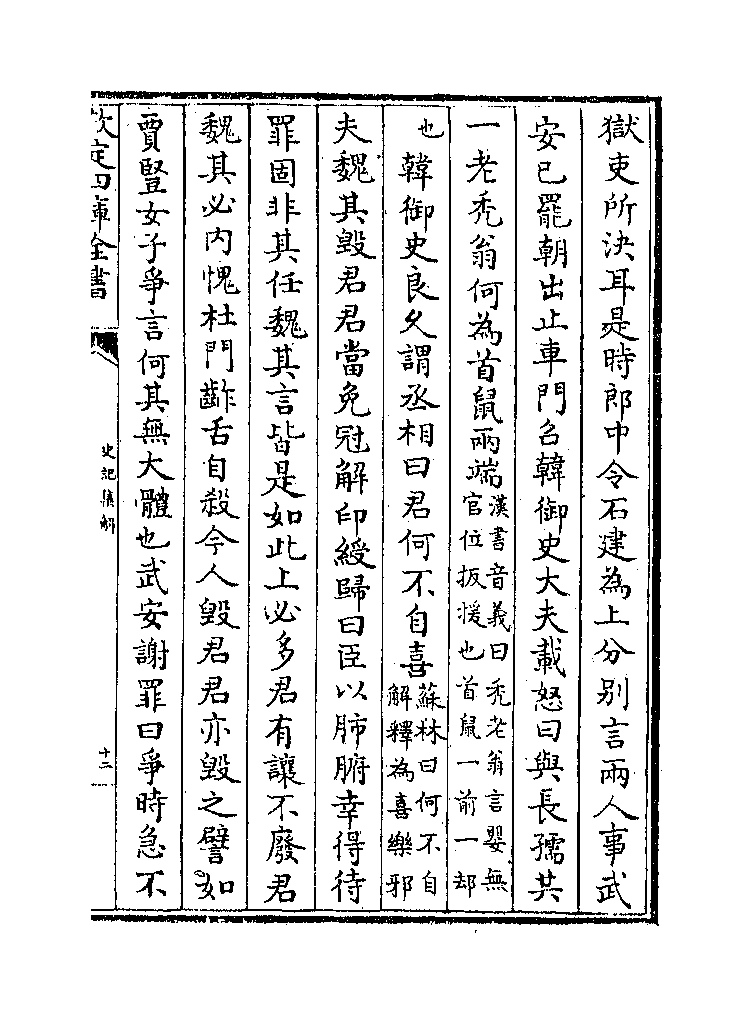 獄吏所決耳是時郎中令石建為上分别言兩人事武
安已罷朝出止車門召韓御史大夫載怒曰與長孺共
一老秃翁何為首鼠兩端漢書音義曰秃老翁言嬰無官位扳援也首鼠一前一却
也韓御史良久謂丞相曰君何不自喜蘇林曰何不自解釋為喜樂邪
夫魏其毁君君當免冠解印綬歸曰臣以肺腑幸得待
罪固非其任魏其言皆是如此上必多君有讓不廢君
魏其必内愧杜門齰舌自殺今人毁君君亦毁之譬如
賈豎女子爭言何其無大體也武安謝罪曰爭時急不
欽定四庫全書
史記集解
十二